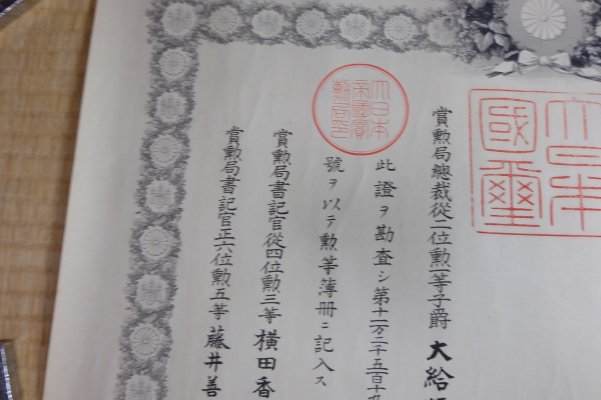 大日本國璽
賞勲局總裁從二位勲一等子爵 大給
此證ヲ勘査シ第十一万二千五百十九
號ヲ以テ勲等簿冊ニ記入ス
大日本帝國賞勲局印
賞勲局書記官從四位勲三等 横田香
賞勲局書記官正六位勲五等 藤井善